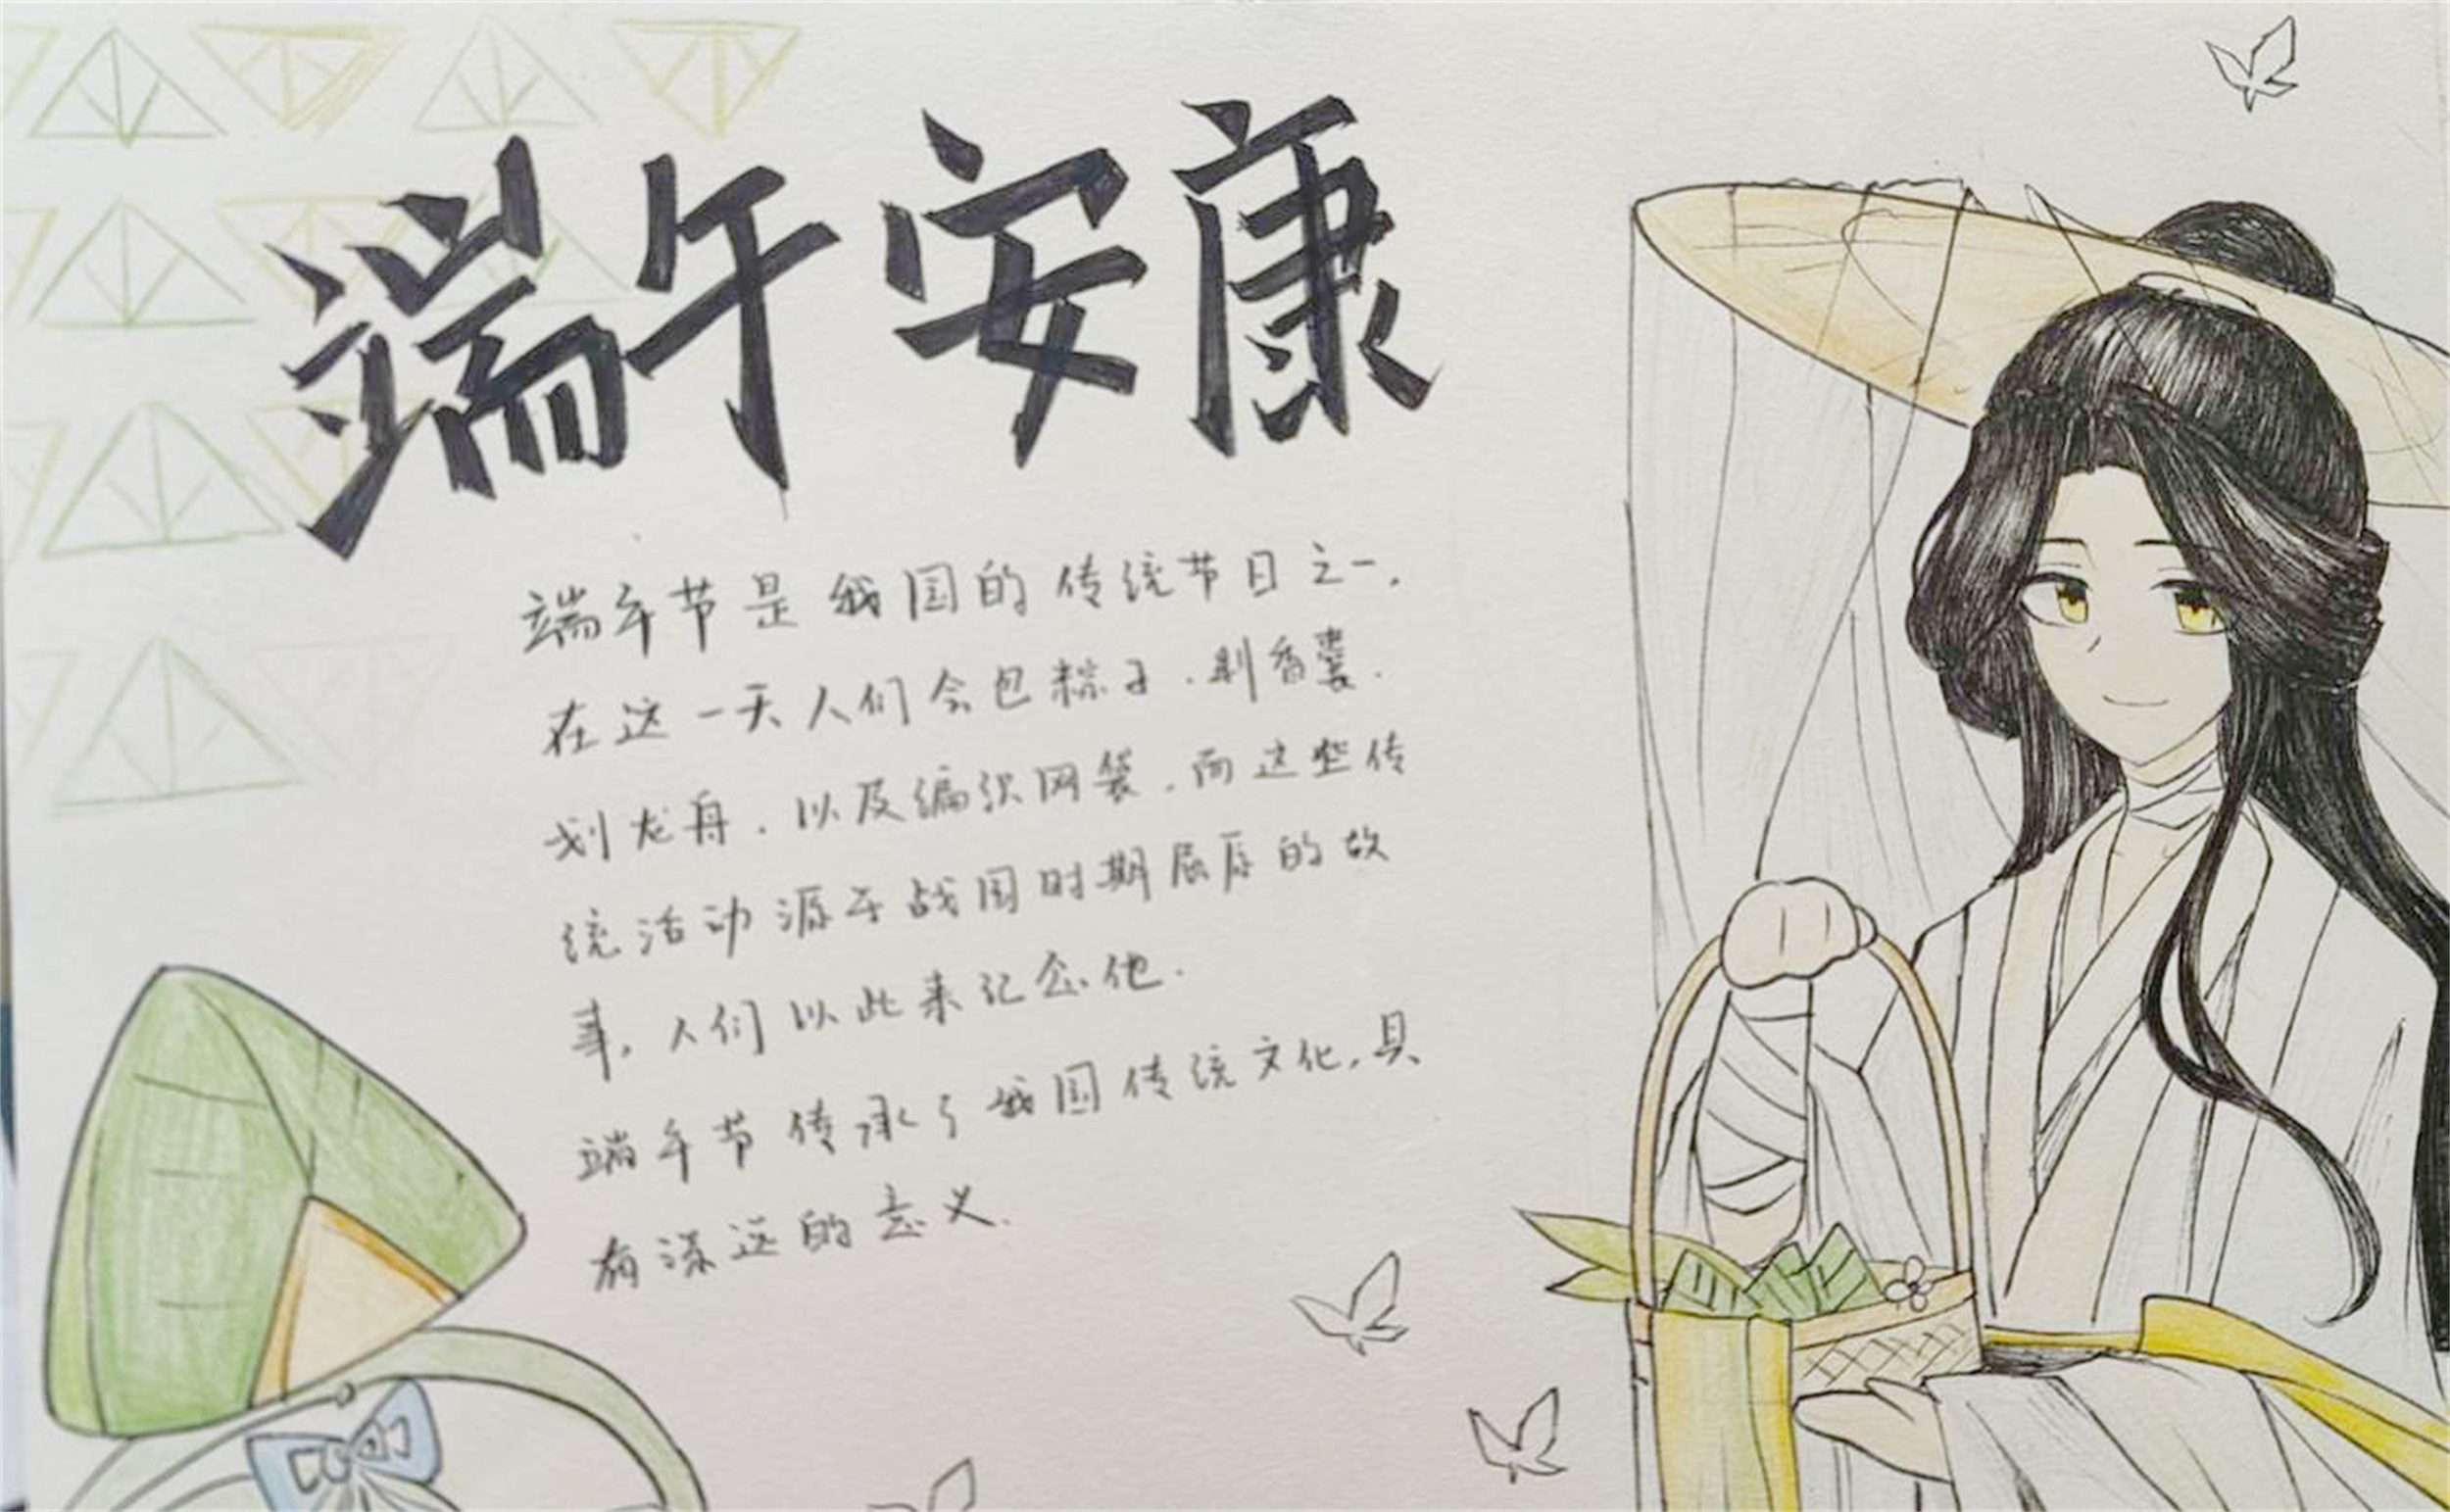 端午安康
端午节是我国的传统节日之一,
在这一天人们会包粽子、制香囊、
划龙舟、以及编织网袋,而这些传
统活动源于战国时期屈原的故
事,人们以此来纪念他.
端午节传承了我国传统文化,具
有深远的意义.